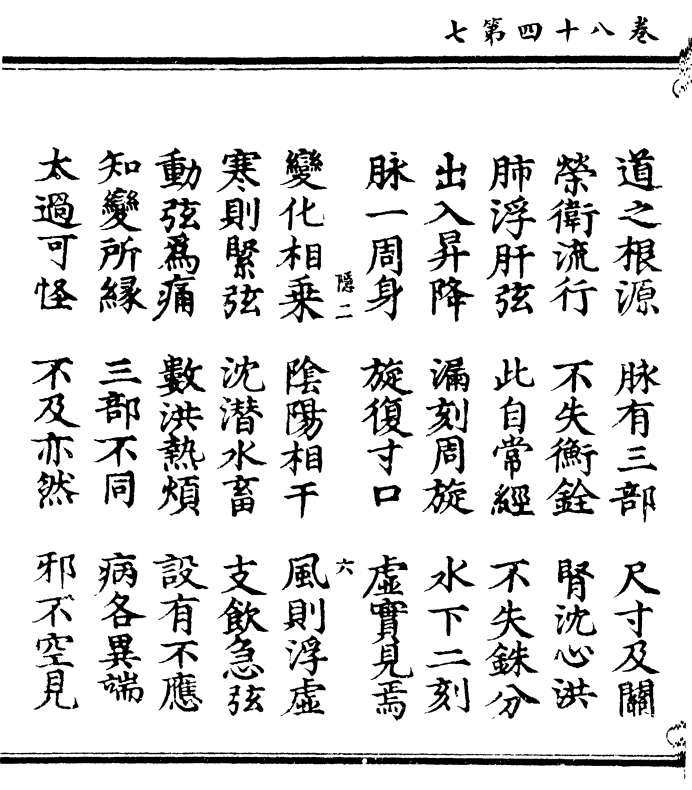 卷八十四第七
道之根源 脉有三部 尺寸及關
榮衛流行 不失衡銓 腎沈心洪
肺浮肝弦 此自常經 不失銖分
出入昇降 漏刻周旋 水下二刻
脉一周身 旋復寸口 虚實見焉
隱二 六
變化相乗 陰陽相干 風則浮虚
寒則緊弦 沈潜水畜 支飲急弦
動弦爲痛 數洪熱煩 設有不應
知變所緣 三部不同 病各異端
太過可怪 不及亦然 邪不空見